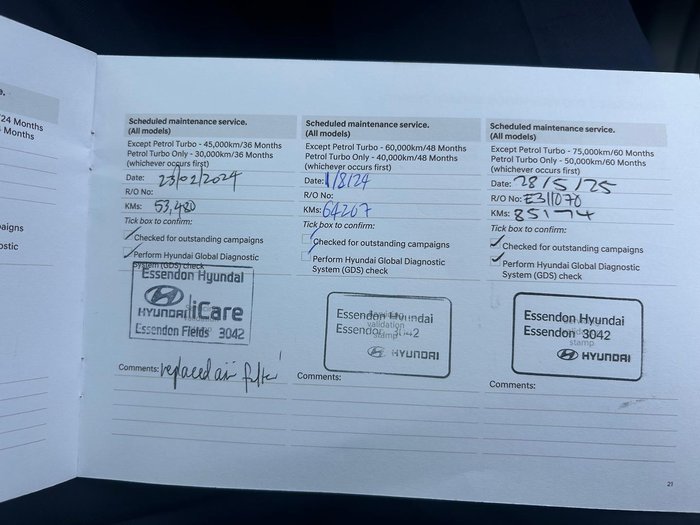 e.
/24 Months
4 Months
paigns
ostic
Scheduled maintenance service.
(All models)
Except Petrol Turbo - 45,000km/36 Months
Petrol Turbo Only - 30,000km/36 Months
(whichever occurs first)
Date: 23/02/2024
R/O No:
KMs: 53,480
Tick box to confirm:
Checked for outstanding campaigns
Perform Hyundai Global Diagnostic
System (GDS) check
Essendon Hyundai
HYUNDAI iCare
Essendon Fields 3042
Comments: replaced air filter
Scheduled maintenance service.
(All models)
Except Petrol Turbo - 60,000km/48 Months
Petrol Turbo Only - 40,000km/48 Months
(whichever occurs first)
Date: 1/8/24
R/O No:
KMs: 64207
Tick box to confirm:
Checked for outstanding campaigns
Perform Hyundai Global Diagnostic
System (GDS) check
Essendon Hyundai
Essendon 3042
validation
stamp
HYUNDAI
Comments:
Scheduled maintenance service.
(All models)
Except Petrol Turbo - 75,000km/60 Months
Petrol Turbo Only - 50,000km/60 Months
(whichever occurs first)
Date: 28/5/25
R/O No: E311070
KMs: 85174
Tick box to confirm:
Checked for outstanding campaigns
Perform Hyundai Global Diagnostic
System (GDS) check
Essendon Hyundai
Essendon 3042
stamp
HYUNDAI
Comments:
21